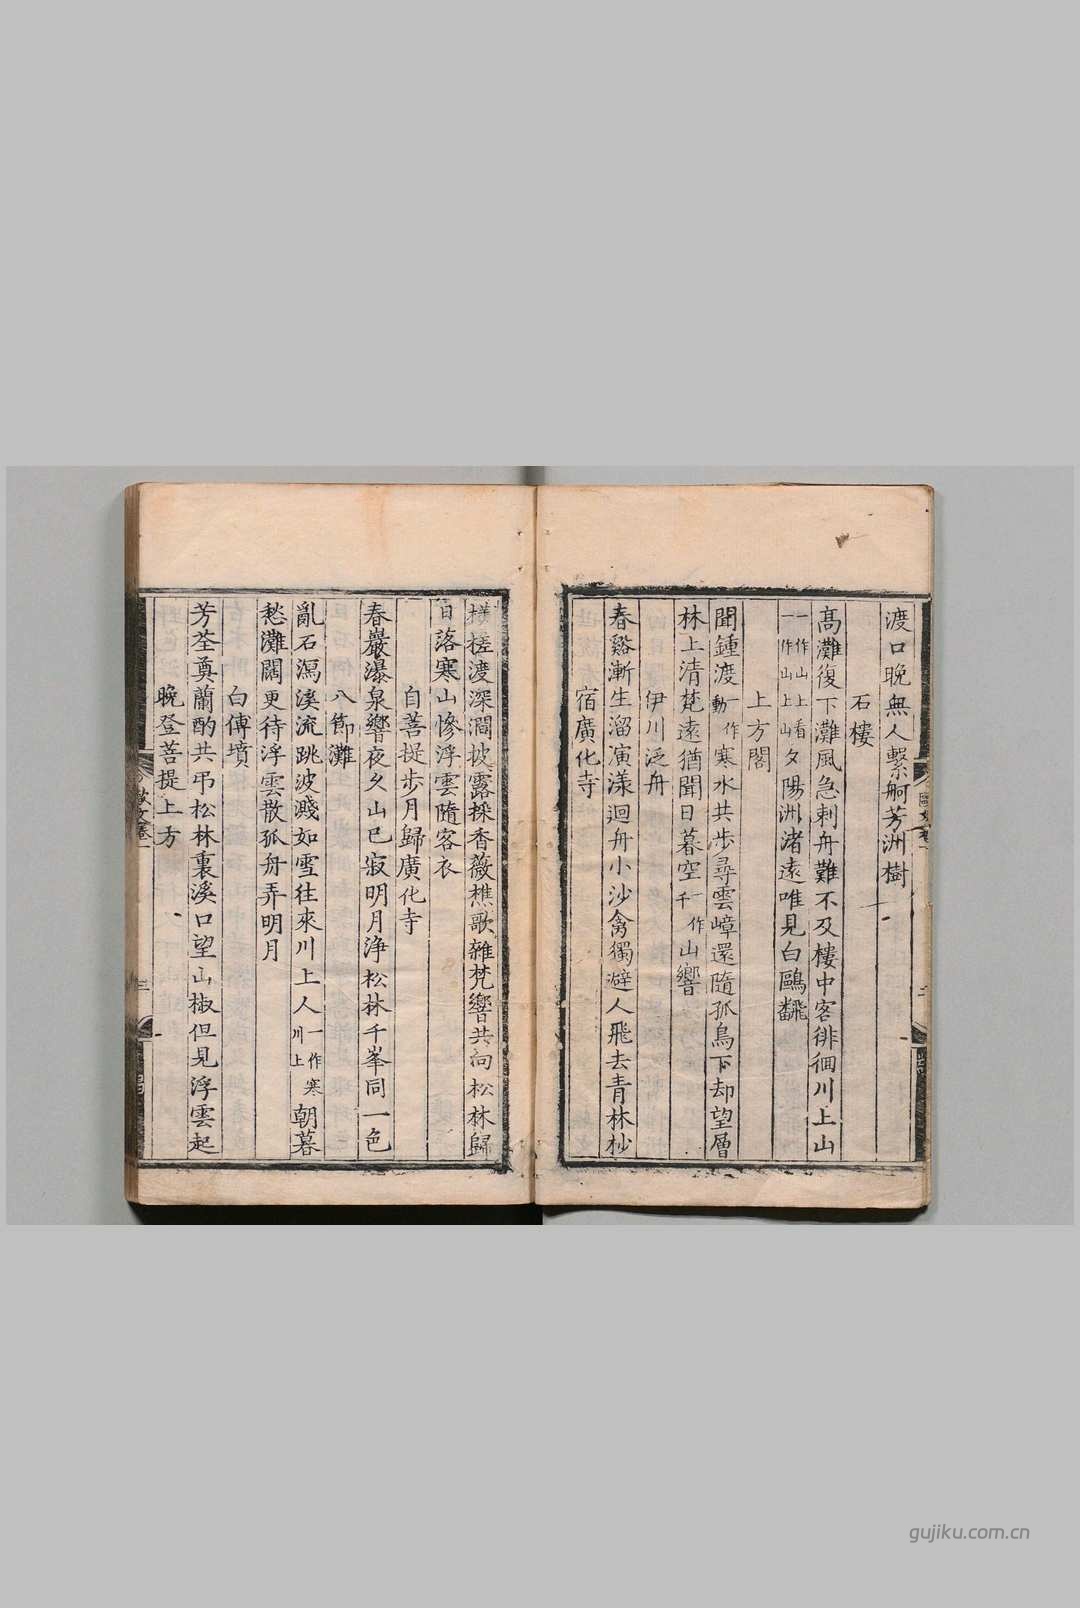 渡口晚無人繫舸芳洲樹
石樓
高灘復下灘風急刺舟難不及樓中客徘徊川上山
一作山上看一作山上山夕陽洲渚遠唯見白鷗翻
上方閣
聞鍾渡一作動寒水共步尋雲嶂還隨孤鳥下却望層
林上清梵遠猶聞日暮空一作千山響
伊川泛舟
春谿漸生溜演漾迴舟小沙禽獨避人飛去青林杪
宿廣化寺
橫槎渡深澗披露採香薇樵歌雜梵響共向松林歸
日落寒山慘浮雲隨客衣
自菩提步月歸廣化寺
春巖瀑泉響夜久山已寂明月浄松林千峯同一色
八節灘
亂石瀉溪流跳波濺如雪往來川上人一作寒川上朝暮
愁灘闊更待浮雲散孤舟弄明月
白傅墳
芳荃奠蘭酌共弔松林裏溪口望山椒但見浮雲起
晚登菩提上方
gujiku.com.cn